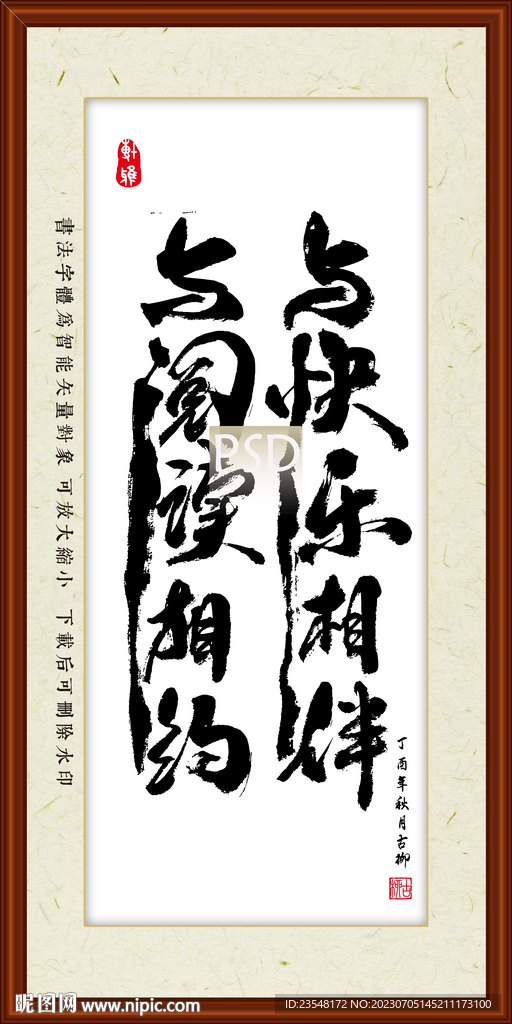 与快乐相伴
与阅读相约
丁酉年秋月古柳
軒雅
古柳
書法字體為智能矢量對象 可放大縮小 下載后可刪除水印
PSD
昵图网 www.nipic.com
ID:23548172 NO:20230705145211173100